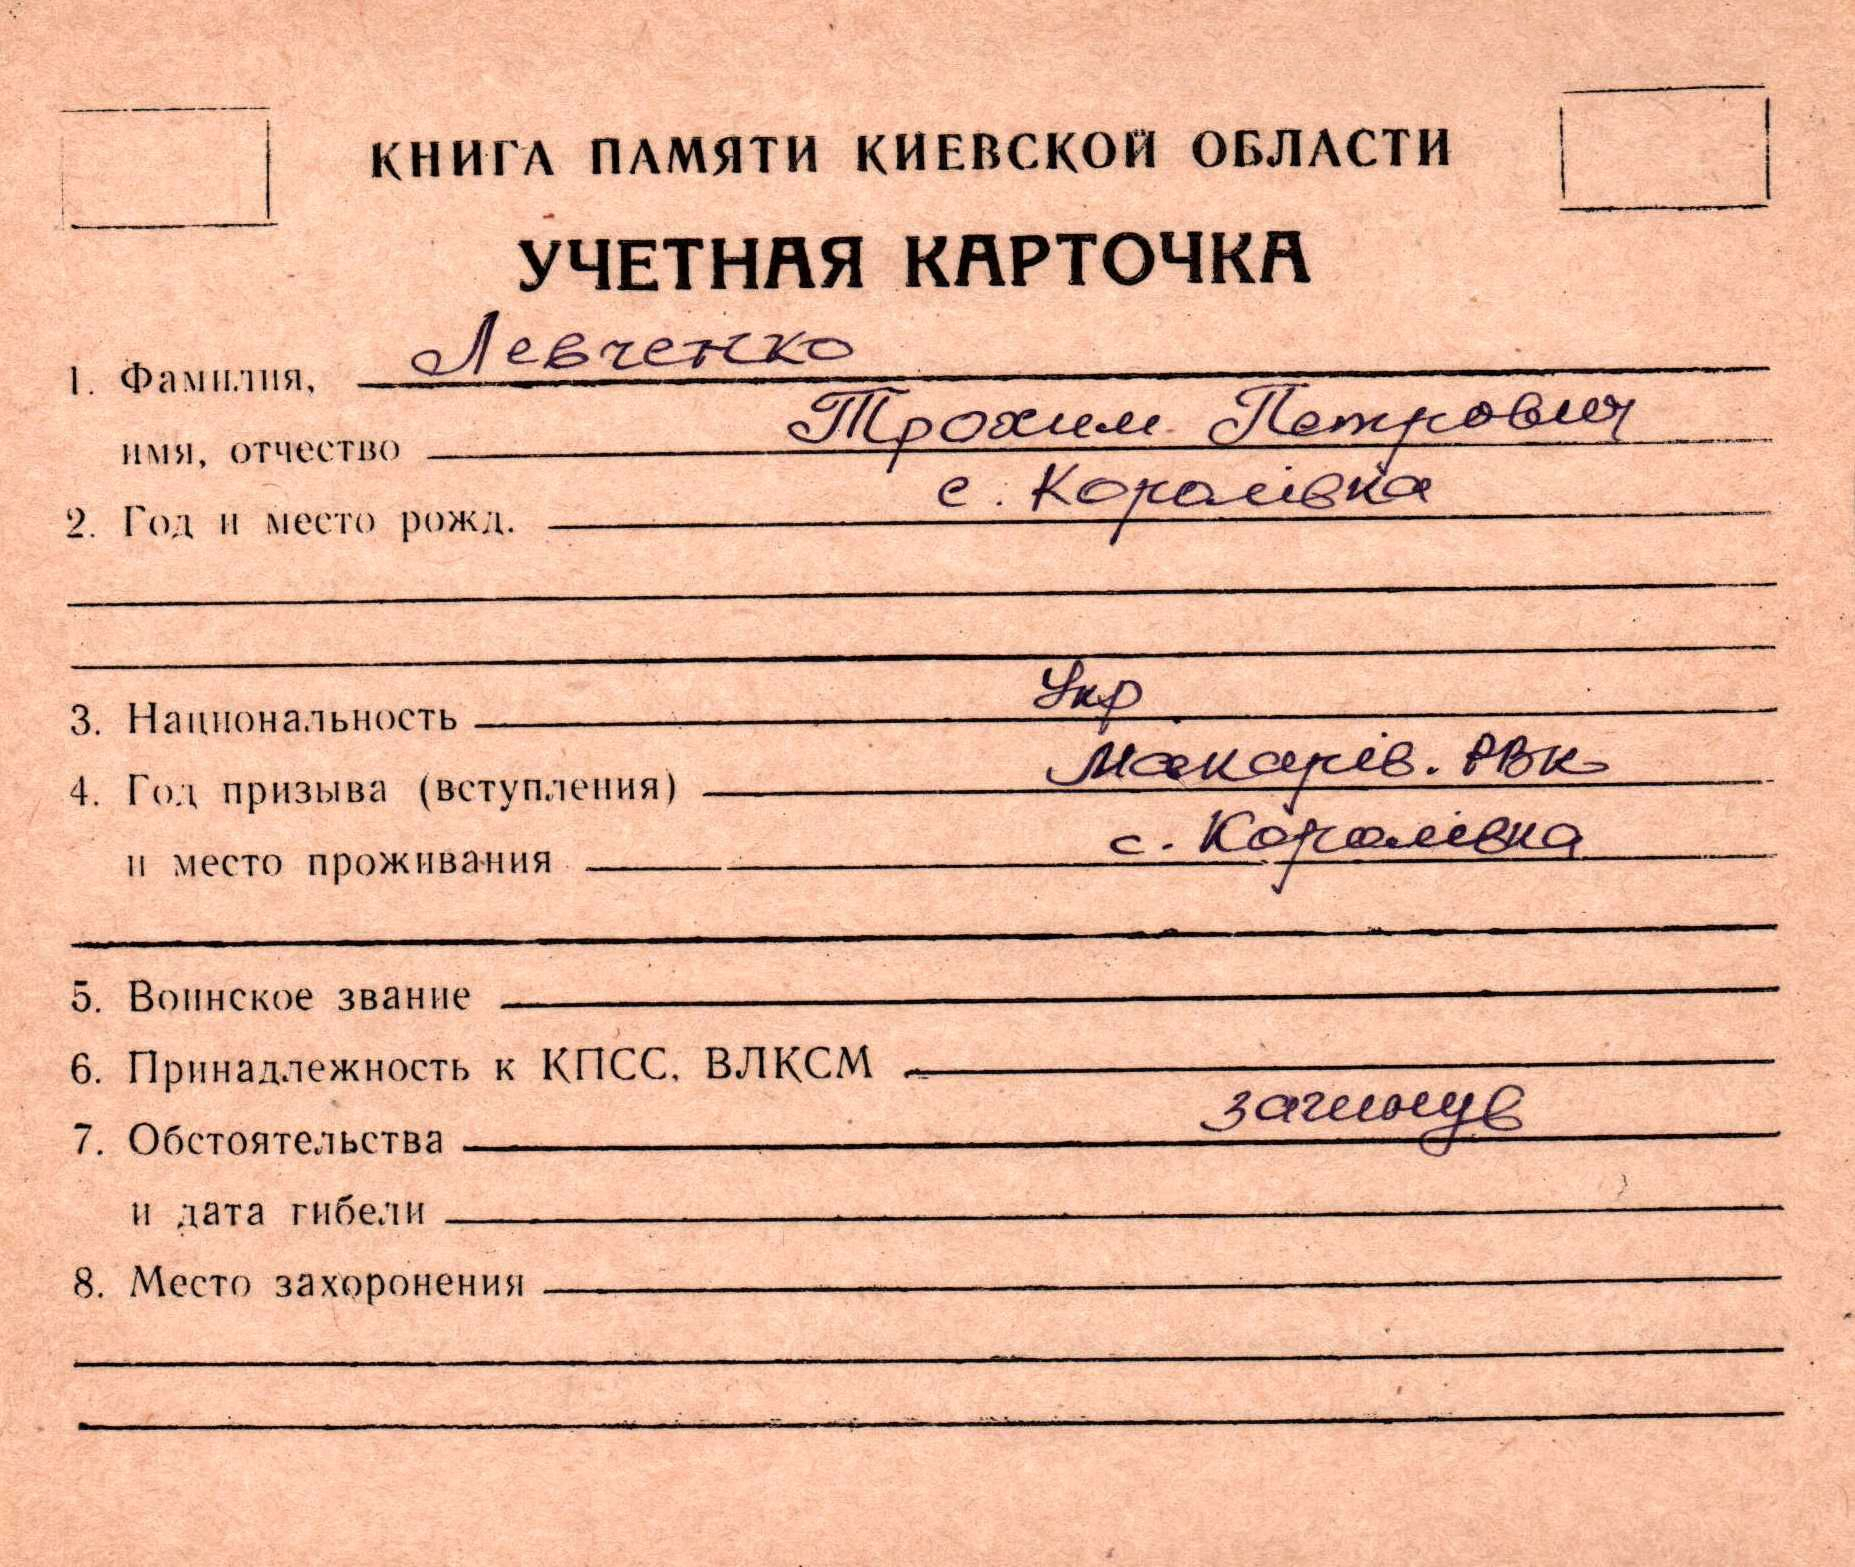 КНИГА ПАМЯТИ КИЕВСКОЙ ОБЛАСТИ
УЧЕТНАЯ КАРТОЧКА
1. Фамилия, Левченко
имя, отчество Трохим Петрович
2. Год и место рожд. с. Королівка
3. Национальность Укр
4. Год призыва (вступления) Макарів. РВК
и место проживания с. Королівка
5. Воинское звание
6. Принадлежность к КПСС, ВЛКСМ
7. Обстоятельства загинув
и дата гибели
8. Место захоронения